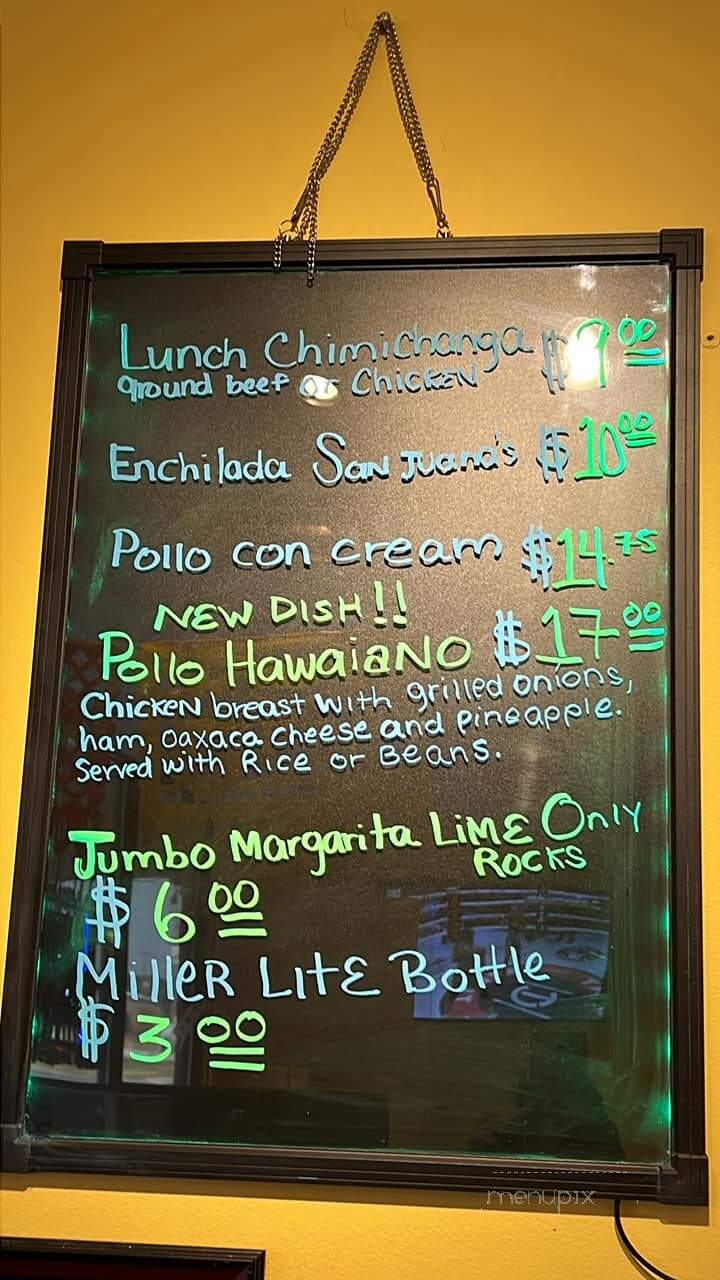 Lunch Chimichanga $9.00
ground beef or Chicken
Enchilada San Juana's $10.00
Pollo con cream $14.75
NEW DISH!!
Pollo Hawaiano $17.00
Chicken breast with grilled onions,
ham, oaxaca cheese and pineapple.
Served with Rice or Beans.
Jumbo Margarita Lime Only
Rocks
$6.00
Miller Lite Bottle
$3.00
menupix